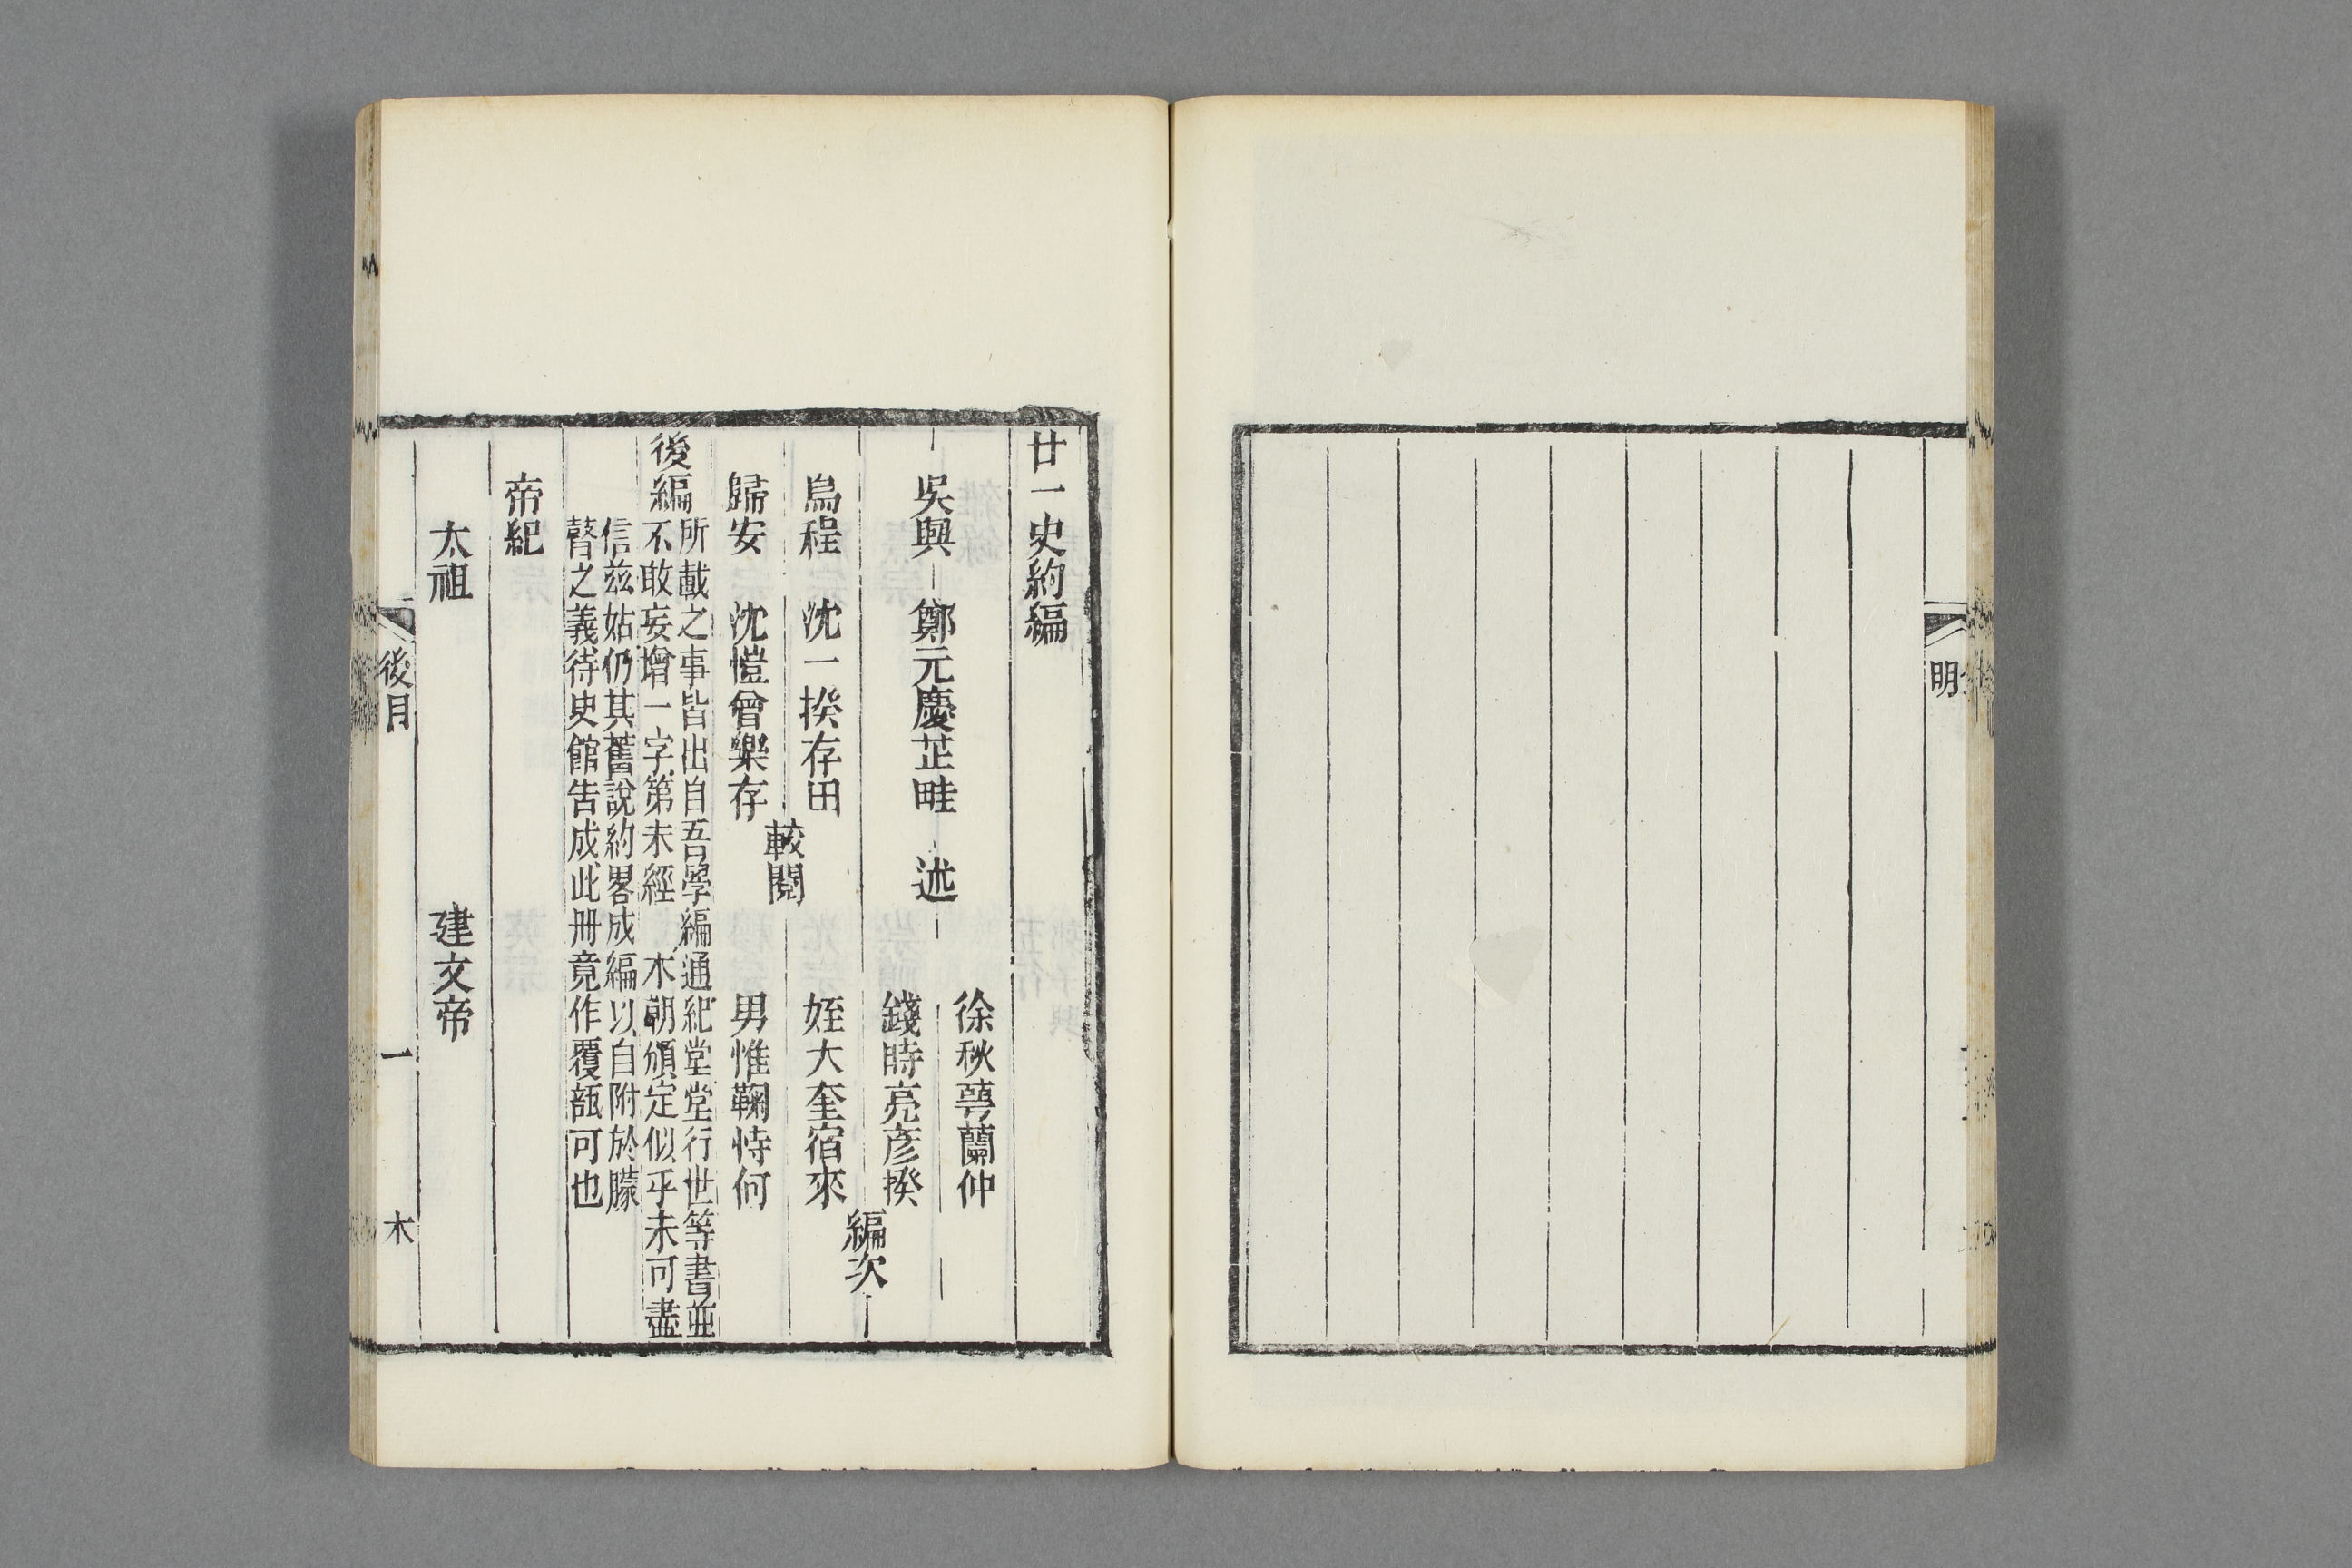 明
廿一史約編
吳興 鄭元慶芷畦 述
徐秋蕚蘭仲
錢時亮彦揆
編次
烏程 沈一揆存田
姪大奎宿來
較閱
歸安 沈愷曾樂存
男惟鞠恃何
後編
所載之事皆出自吾學編通紀堂堂行世等書並
不敢妄增一字第未經 本朝頒定似乎未可盡
信茲姑仍其舊說約畧成編以自附於矇
瞽之義待史館告成此冊竟作覆瓿可也
帝紀
太祖 建文帝
後目 一 木